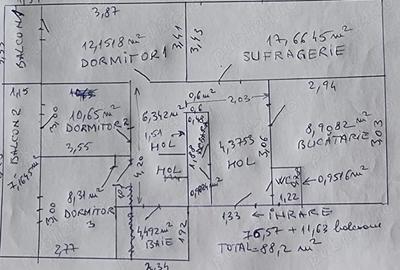 3,87
BALCON 1
12,1518 m²
DORMITOR 1
3,41
3,43
17,6645 m²
SUFRAGERIE
1,15
BALCON 2
3,00
10,65 m²
DORMITOR 2
3,55
6,342 m²
1,51
HOL
HOL
4,20
0,6 m²
0,6
2,03
1,88
4,3753
HOL
3,06
2,94
8,9082 m²
BUCATARIE
3,03
WC
0,9516 m²
1,22
8,31 m²
DORMITOR
3
3,00
2,77
4,492 m²
BAIE
1,92
2,34
1,33
INRARE
76,57 + 11,63 balcoane
TOTAL = 88,2 m²